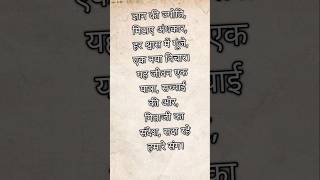 ज्ञान की ज्योति,
मिटाए अंधकार,
हर श्वास में गूंजे,
एक नया विचार।
यह जीवन एक
यात्रा, सच्चाई
की ओर,
पिताजी का
संदेश, सदा रहे
हमारे संग।